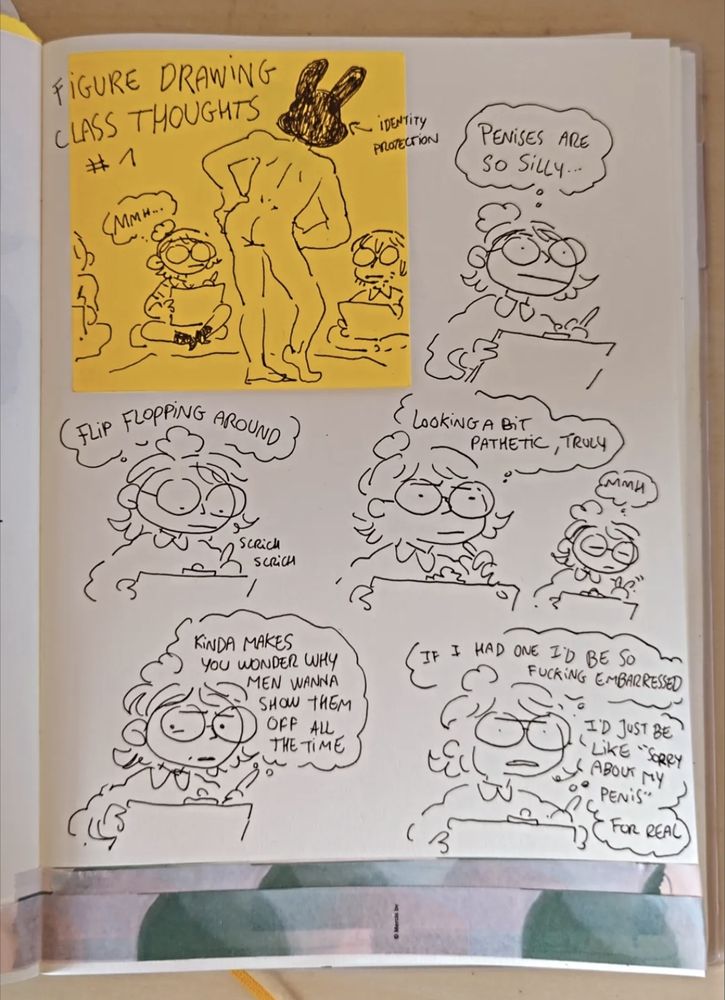 FIGURE DRAWING
CLASS THOUGHTS
#1
IDENTITY
PROTECTION
MMH...
PENISES ARE
SO SILLY...
FLIP FLOPPING AROUND
SCRICH
SCRICH
LOOKING A BIT
PATHETIC, TRULY
MMH
KINDA MAKES
YOU WONDER WHY
MEN WANNA
SHOW THEM
OFF ALL
THE TIME
IF I HAD ONE I'D BE SO
FUCKING EMBARRESSED
I'D JUST BE
LIKE "SORRY
ABOUT MY
PENIS"
FOR REAL